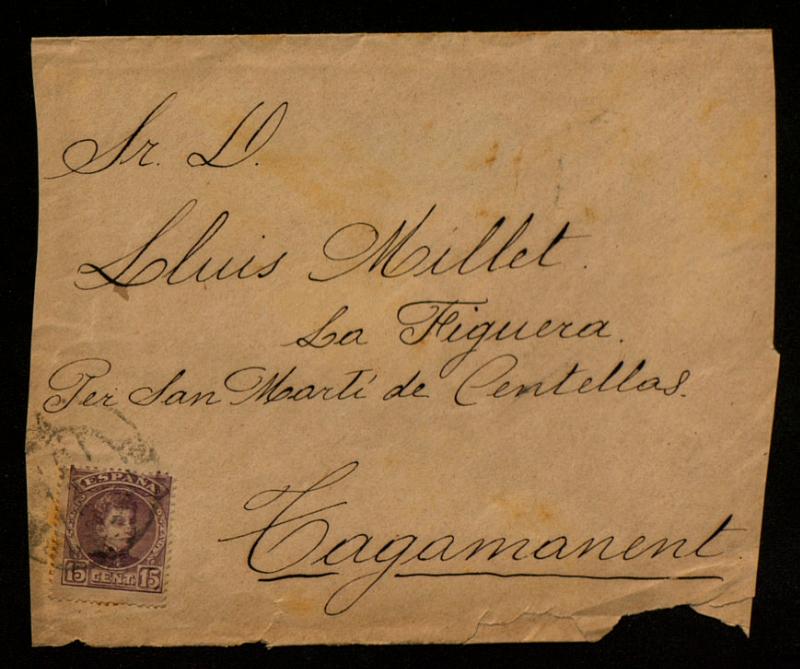 Sr. D.
Lluis Millet.
La Figuera.
Per San Martí de Centellas.
Tagamanent
ESPAÑA
15 CENT. 15